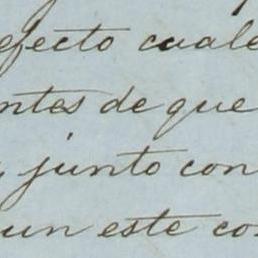 efecto cuale
ntes de que
, junto con
un este co